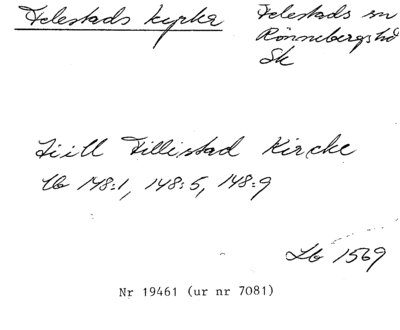 Felestads kyrka
Felestads sn
Rönnebergs hd
Sk
Tiill Fillistad Kircke
Lb 148:1, 148:5, 148:9
Lb 1569
Nr 19461 (ur nr 7081)